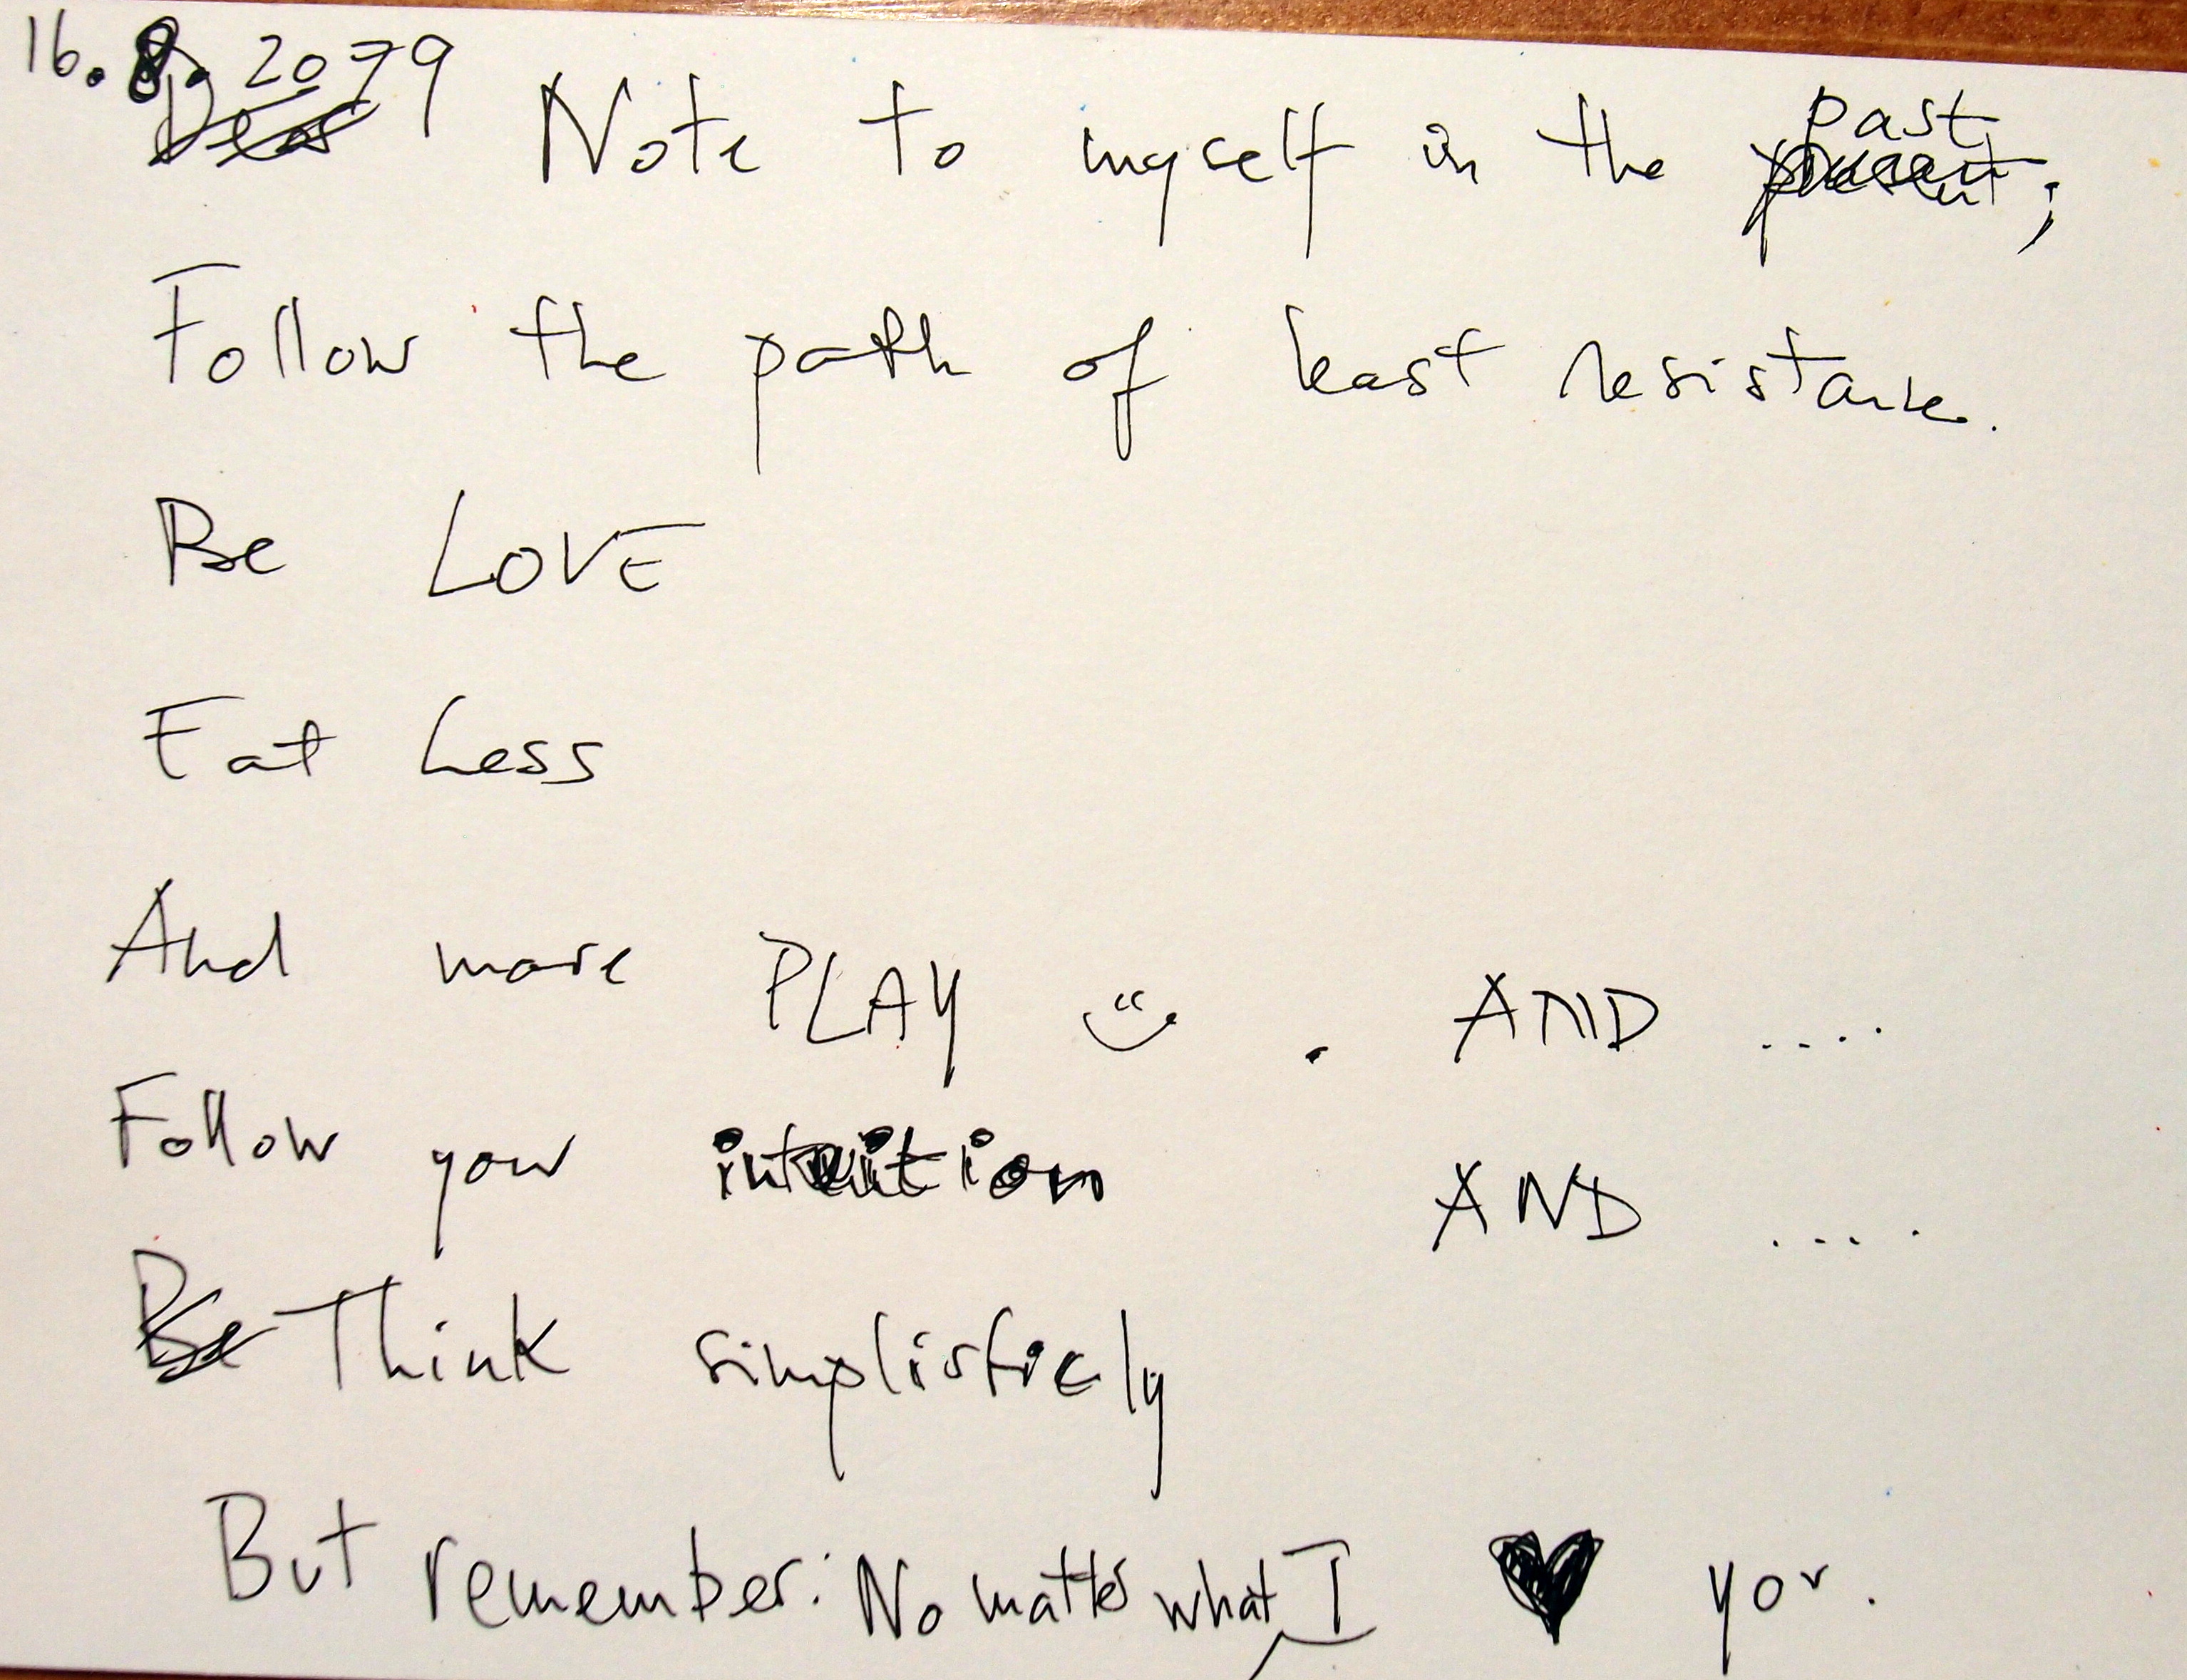 16.8.2079
Dear Note to myself in the present past;
Follow the path of least resistance.
Be LOVE
Eat Less
And more PLAY . AND ....
Follow your intuition AND ....
Be Think simplisticly
But remember: No matter what, I ♥ you.